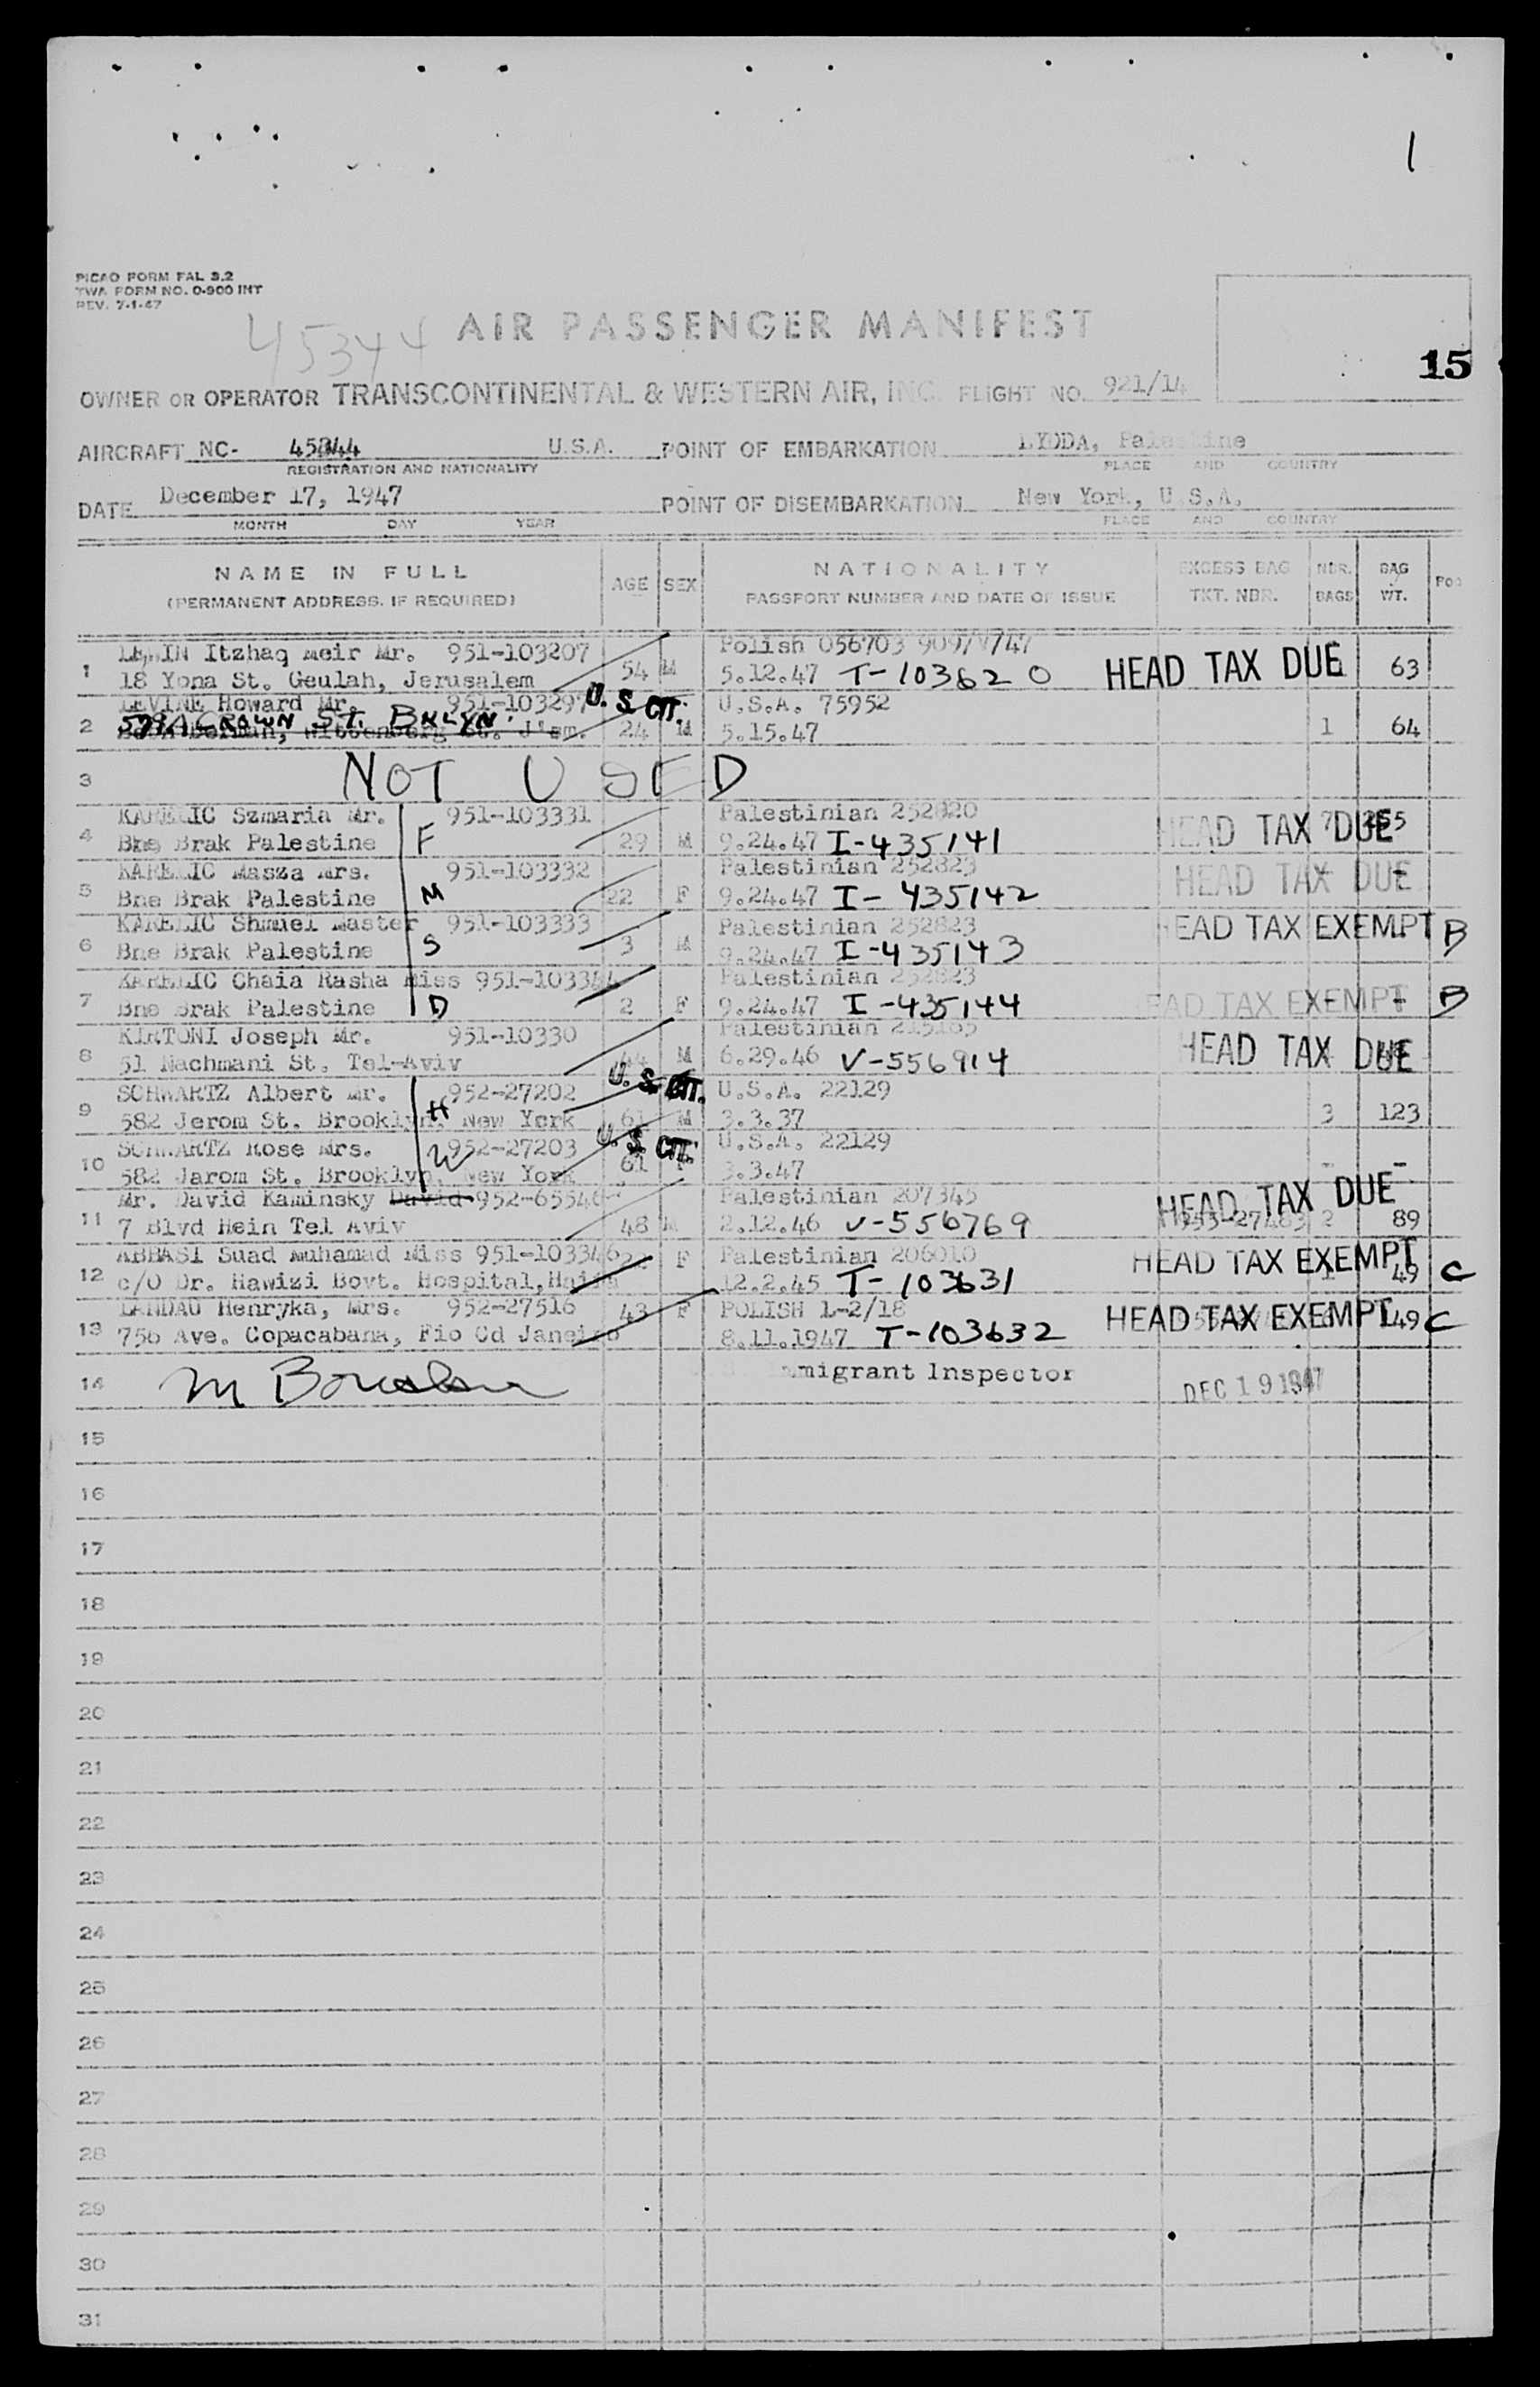 1
PICAO FORM FAL 3.2
TWA FORM NO. 0-900 INT
REV. 7-1-47
45344
AIR PASSENGER MANIFEST
15
OWNER OR OPERATOR TRANSCONTINENTAL & WESTERN AIR, INC. FLIGHT NO. 921/14
AIRCRAFT NC- 45344 U.S.A. POINT OF EMBARKATION LYDDA, Palestine
REGISTRATION AND NATIONALITY PLACE AND COUNTRY
DATE December 17, 1947 POINT OF DISEMBARKATION New York, U.S.A.
MONTH DAY YEAR PLACE AND COUNTRY
NAME IN FULL AGE SEX NATIONALITY EXCESS BAG NBR. BAG
(PERMANENT ADDRESS, IF REQUIRED) PASSPORT NUMBER AND DATE OF ISSUE TKT. NBR. BAGS WT.
1 Itzhaq Meir Mr. 951-103207 Polish 056703 909/V/47
18 Yona St. Geulah, Jerusalem 54 M 5.12.47 T-103620 HEAD TAX DUE 63
LEVINE Howard Mr. 951-103297 U.S. CIT. U.S.A. 75952
2 CROWN ST. BKLYN. 24 M 5.15.47 1 64
3 NOT USED
KARELIC Szmaria Mr. 951-103331 Palestinian 252820
4 Bne Brak Palestine F 29 M 9.24.47 I-435141 HEAD TAX DUE
KARELIC Masza Mrs. 951-103332 Palestinian 252823
5 Bne Brak Palestine M 22 F 9.24.47 I-435142 HEAD TAX DUE
KARELIC Shmuel Master 951-103333 Palestinian 252823
6 Bne Brak Palestine S 3 M 9.24.47 I-435143 HEAD TAX EXEMPT B
KARELIC Chaia Rasha Miss Palestinian 252823
7 Bne Brak Palestine D 2 F 9.24.47 I-435144 HEAD TAX EXEMPT - B
KIRTONI Joseph Mr. 951-10330 Palestinian
8 51 Nachmani St. Tel-Aviv 44 M 6.29.46 V-556914 HEAD TAX DUE
SCHWARTZ Albert Mr. 952-27202 U.S. CIT. U.S.A. 22129
9 582 Jerom St. Brooklyn, New York H 61 M 3.3.37 3 123
SCHWARTZ Rose Mrs. 952-27203 U.S. CIT. U.S.A. 22129
10 582 Jarom St. Brooklyn, New York W 61 F 3.3.47 - -
Mr. David Kaminsky David Palestinian 207345 HEAD TAX DUE
11 7 Blvd Hein Tel Aviv 48 M 2.12.46 V-556769 2 89
ABBASI Suad Muhamad Miss 951-103346 F Palestinian 206010 HEAD TAX EXEMPT
12 c/o Dr. Hawizi Bovt. Hospital, Haifa 12.2.45 T-103631 49 C
LANDAU Henryka, Mrs. 952-27516 43 F POLISH L-2/18 HEAD TAX EXEMPT
13 756 Ave. Copacabana, Rio Cd Janeiro 8.11.1947 T-103632 149 C
14 M Immigrant Inspector DEC 19 1947
15
16
17
18
19
20
21
22
23
24
25
26
27
28
29
30
31